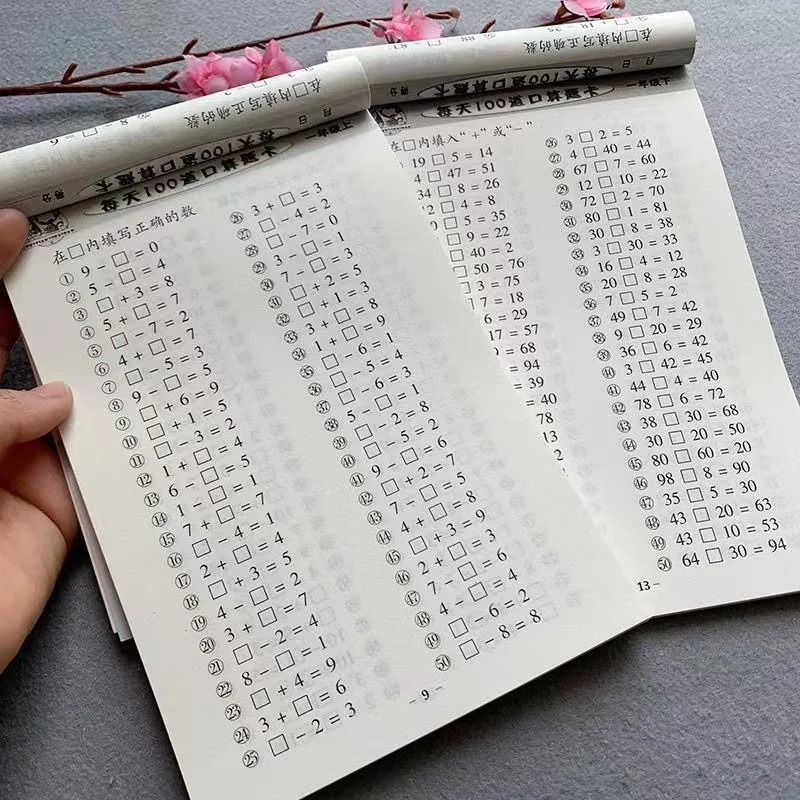 在□内填写正确的数
每天100道口算题卡
一年级上
月 日
得分
每天100道口算题卡
在□内填写正确的数
① 9 − □ = 0
② 5 − □ = 4
③ □ + 3 = 8
④ 5 + □ = 7
⑤ □ − 7 = 2
⑥ 4 + □ = 7
⑦ □ − 5 = 3
⑧ 9 − □ = 5
⑨ □ + 6 = 9
⑩ □ + 1 = 5
⑪ □ − 3 = 2
⑫ 1 + □ = 4
⑬ 6 − □ = 5
⑭ 1 − □ = 1
⑮ 7 + □ = 7
⑯ □ − 4 = 1
⑰ 2 + □ = 4
⑱ □ + 3 = 5
⑲ 4 − □ = 2
⑳ 3 + □ = 7
㉑ □ − 2 = 4
㉒ 8 − □ = 1
㉓ □ + 4 = 9
㉔ 3 + □ = 6
㉕ □ − 2 = 3
㉖ 3 + □ = 3
㉗ □ − 4 = 2
㉘ □ − 7 = 0
㉙ 3 − □ = 1
㉚ 7 − □ = 3
㉛ □ + 2 = 5
㉜ □ + 1 = 3
㉝ 3 + □ = 8
㉞ 1 + □ = 9
㉟ □ − 6 = 1
㊱ □ − 5 = 4
㊲ □ − 6 = 3
㊳ 5 − □ = 1
㊴ □ − 2 = 8
㊵ □ − 5 = 2
㊶ 9 − □ = 6
㊷ □ + 2 = 7
㊸ 7 − □ = 5
㊹ 4 + □ = 8
㊺ □ + 3 = 9
㊻ 2 + □ = 3
㊼ 7 − □ = 6
㊽ 4 − □ = 4
㊾ □ − 6 = 2
㊿ □ − 8 = 8
– 9 –
在□内填写正确的数
每天100道口算题卡
一年级下
月 日
得分
每天100道口算题卡
在□内填入“+”或“−”
19 □ 5 = 14
4 □ 47 = 51
34 □ 8 = 26
4 □ 4 = 8
□ 5 = 35
□ 9 = 22
□ 40 = 2
□ 50 = 76
□ 3 = 75
□ 7 = 18
□ 6 = 29
□ 17 = 57
= 68
= 94
= 39
= 40
78
13
㉖ 3 □ 2 = 5
㉗ 4 □ 40 = 44
㉘ 67 □ 7 = 60
㉙ 12 □ 10 = 22
㉚ 72 □ 2 = 70
㉛ 80 □ 1 = 81
㉜ 30 □ 8 = 38
㉝ 3 □ 30 = 33
㉞ 16 □ 4 = 12
㉟ 20 □ 8 = 28
㊱ 7 □ 5 = 2
㊲ 49 □ 7 = 42
㊳ 9 □ 20 = 29
㊴ 36 □ 6 = 42
㊵ 3 □ 42 = 45
㊶ 44 □ 4 = 40
㊷ 78 □ 6 = 72
㊸ 38 □ 30 = 68
㊹ 30 □ 20 = 50
㊺ 80 □ 60 = 20
㊻ 98 □ 8 = 90
㊼ 35 □ 5 = 30
㊽ 43 □ 20 = 63
㊾ 43 □ 10 = 53
㊿ 64 □ 30 = 94
13 –